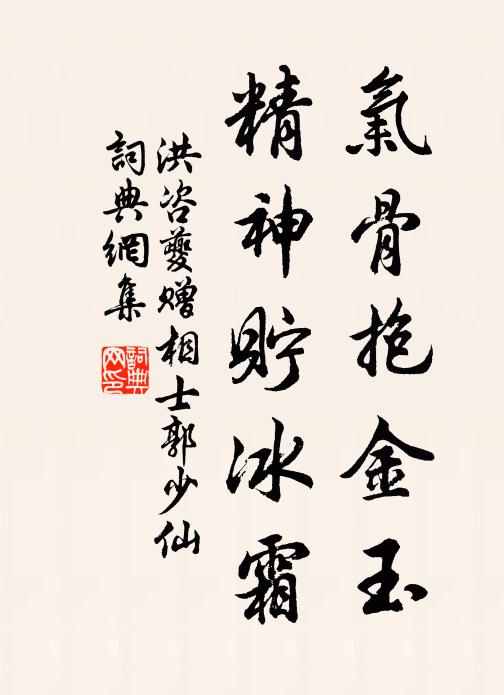 氣骨抱金玉
精神貯冰霜
洪咨夔贈相士郭少仙
詞典網集
詞典网印